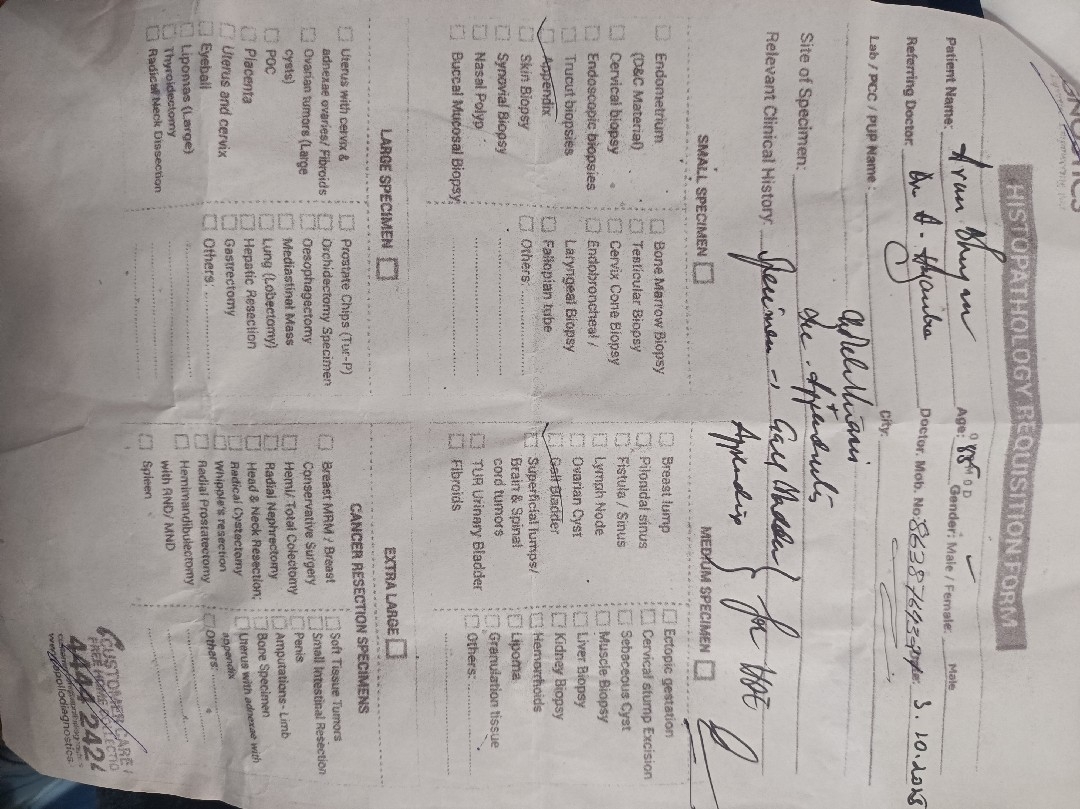 HISTOPATHOLOGY REQUISITION FORM
Patient Name:
Age: 88 Gender: Male / Female: Male
Referring Doctor Dr A. Doctor. Mob. No:
Lab / PCC / PUP Name: City:
Site of Specimen:
Relevant Clinical History: Specimen → Gall bladder
Appendix
for HPE
SMALL SPECIMEN
Endometrium
(D&C Material)
Cervical biopsy
Endoscopic biopsies
Trucut biopsies
Appendix
Skin Biopsy
Synovial Biopsy
Nasal Polyp
Buccal Mucosal Biopsy
Bone Marrow Biopsy
Testicular Biopsy
Cervix Cone Biopsy
Endobroncheal /
Laryngeal Biopsy
Fallopian tube
Others:
MEDIUM SPECIMEN
Breast lump
Pilonidal sinus
Fistula / Sinus
Lymph Node
Ovarian Cyst
Gall Bladder
Superficial lumps/
Brain & Spinal
cord tumors
TUR Urinary Bladder
Fibroids
Ectopic gestation
Cervical stump Excision
Sebaceous Cyst
Muscle Biopsy
Liver Biopsy
Kidney Biopsy
Hemorrhoids
Lipoma
Granulation tissue
Others:
LARGE SPECIMEN
Uterus with cervix &
adnexae ovaries/ Fibroids
Ovarian tumors (Large
cysts)
POC
Placenta
Uterus and cervix
Eyeball
Lipomas (Large)
Thyroidectomy
Radical Neck Dissection
Prostate Chips (Tur-P)
Orchidectomy Specimen
Oesophagectomy
Mediastinal Mass
Lung (Lobectomy)
Hepatic Resection
Gastrectomy
Others:
EXTRA LARGE
CANCER RESECTION SPECIMENS
Breast MRM / Breast
Conservative Surgery
Hemi/ Total Colectomy
Radial Nephrectomy
Head & Neck Resection
Radical Cystectomy
Whipple's resection
Radial Prostatectomy
Hemimandibulectromy
with RND/ MND
Spleen
Soft Tissue Tumors
Small Intestinal Resection
Penis
Amputations - Limb
Bone Specimen
Uterus with adnexae with
appendix
Others:
CUSTOMER CARE /
FREE HOME COLLECTIO
4444 242